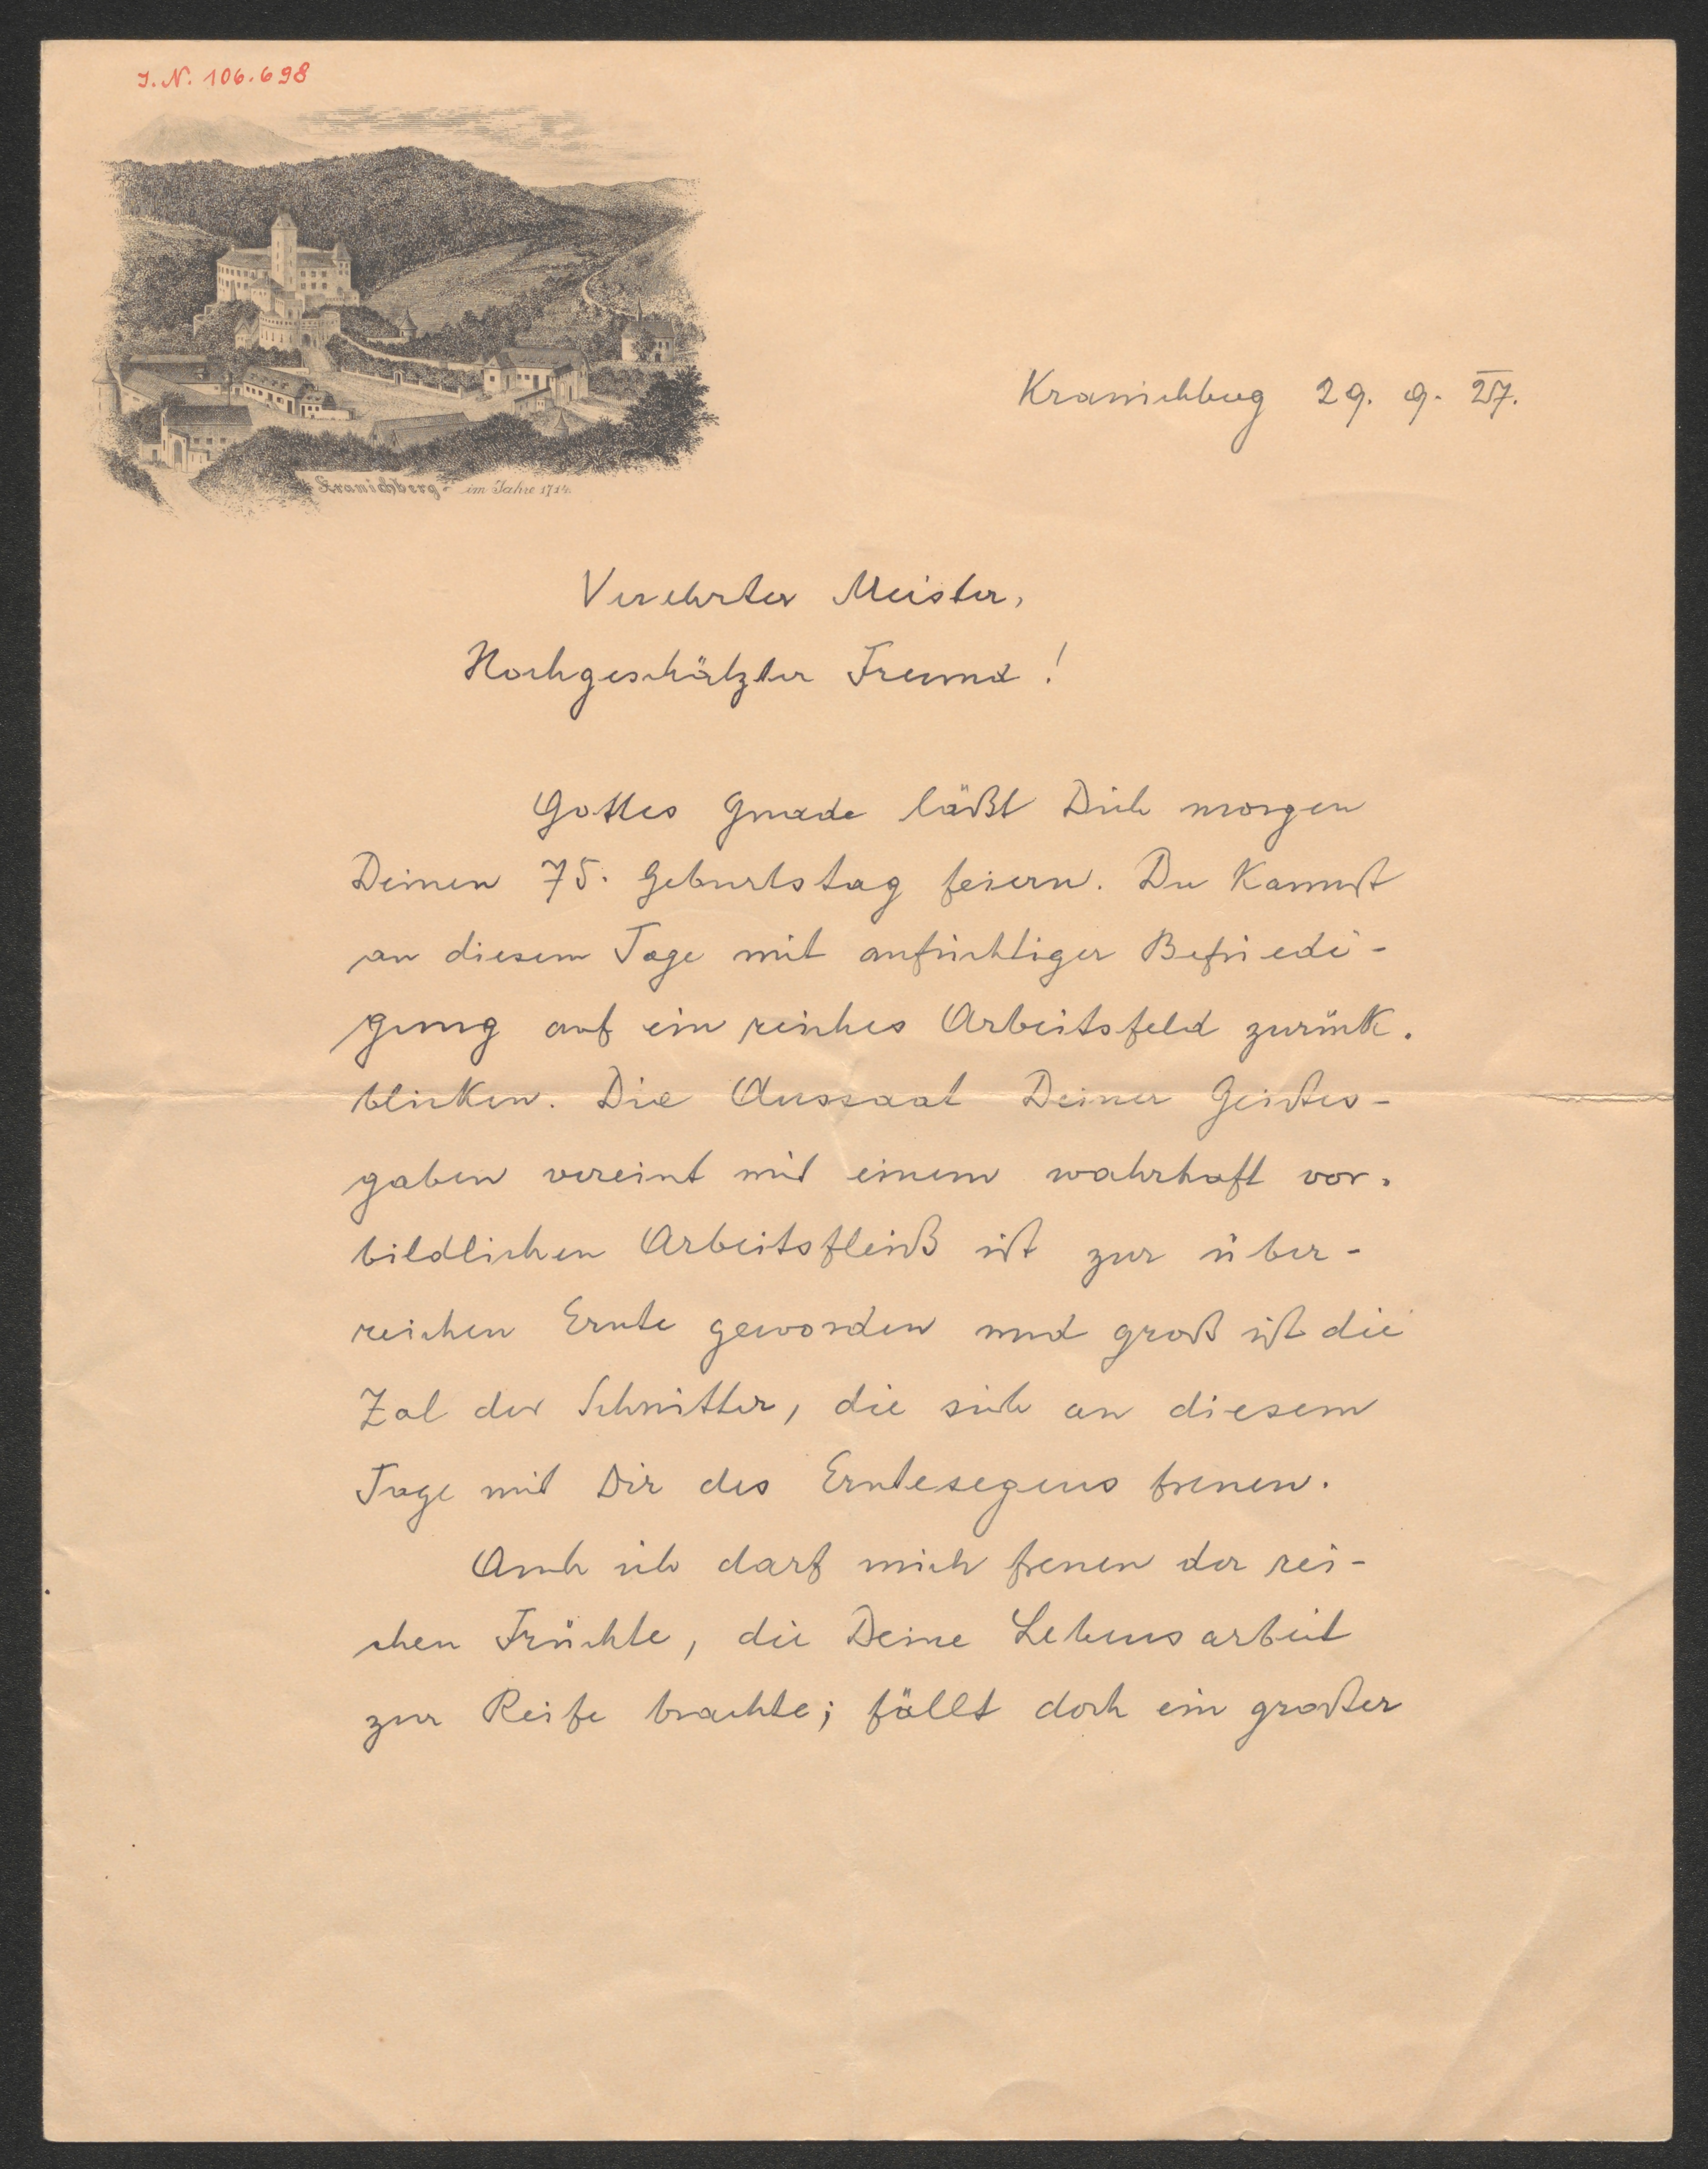 J. N. 106.698
Kranichberg im Jahre 1714.
Kranichberg 29. 9. 27.
Verehrter Meister,
Hochgeschätzter Freund!
Gottes Gnade läßt Dich morgen
Deinen 75. Geburtstag feiern. Du kannst
an diesem Tage mit aufrichtiger Befriedi-
gung auf ein reiches Arbeitsfeld zurück-
blicken. Die Aussaat Deiner Geistes-
gaben vereint mit einem wahrhaft vor-
bildlichen Arbeitsfleiß ist zur über-
reichen Ernte geworden und groß ist die
Zal der Schnitter, die sich an diesem
Tage mit Dir des Erntesegens freuen.
Auch ich darf mich freuen der rei-
chen Früchte, die Deine Lebensarbeit
zur Reife brachte; fällt doch ein großer